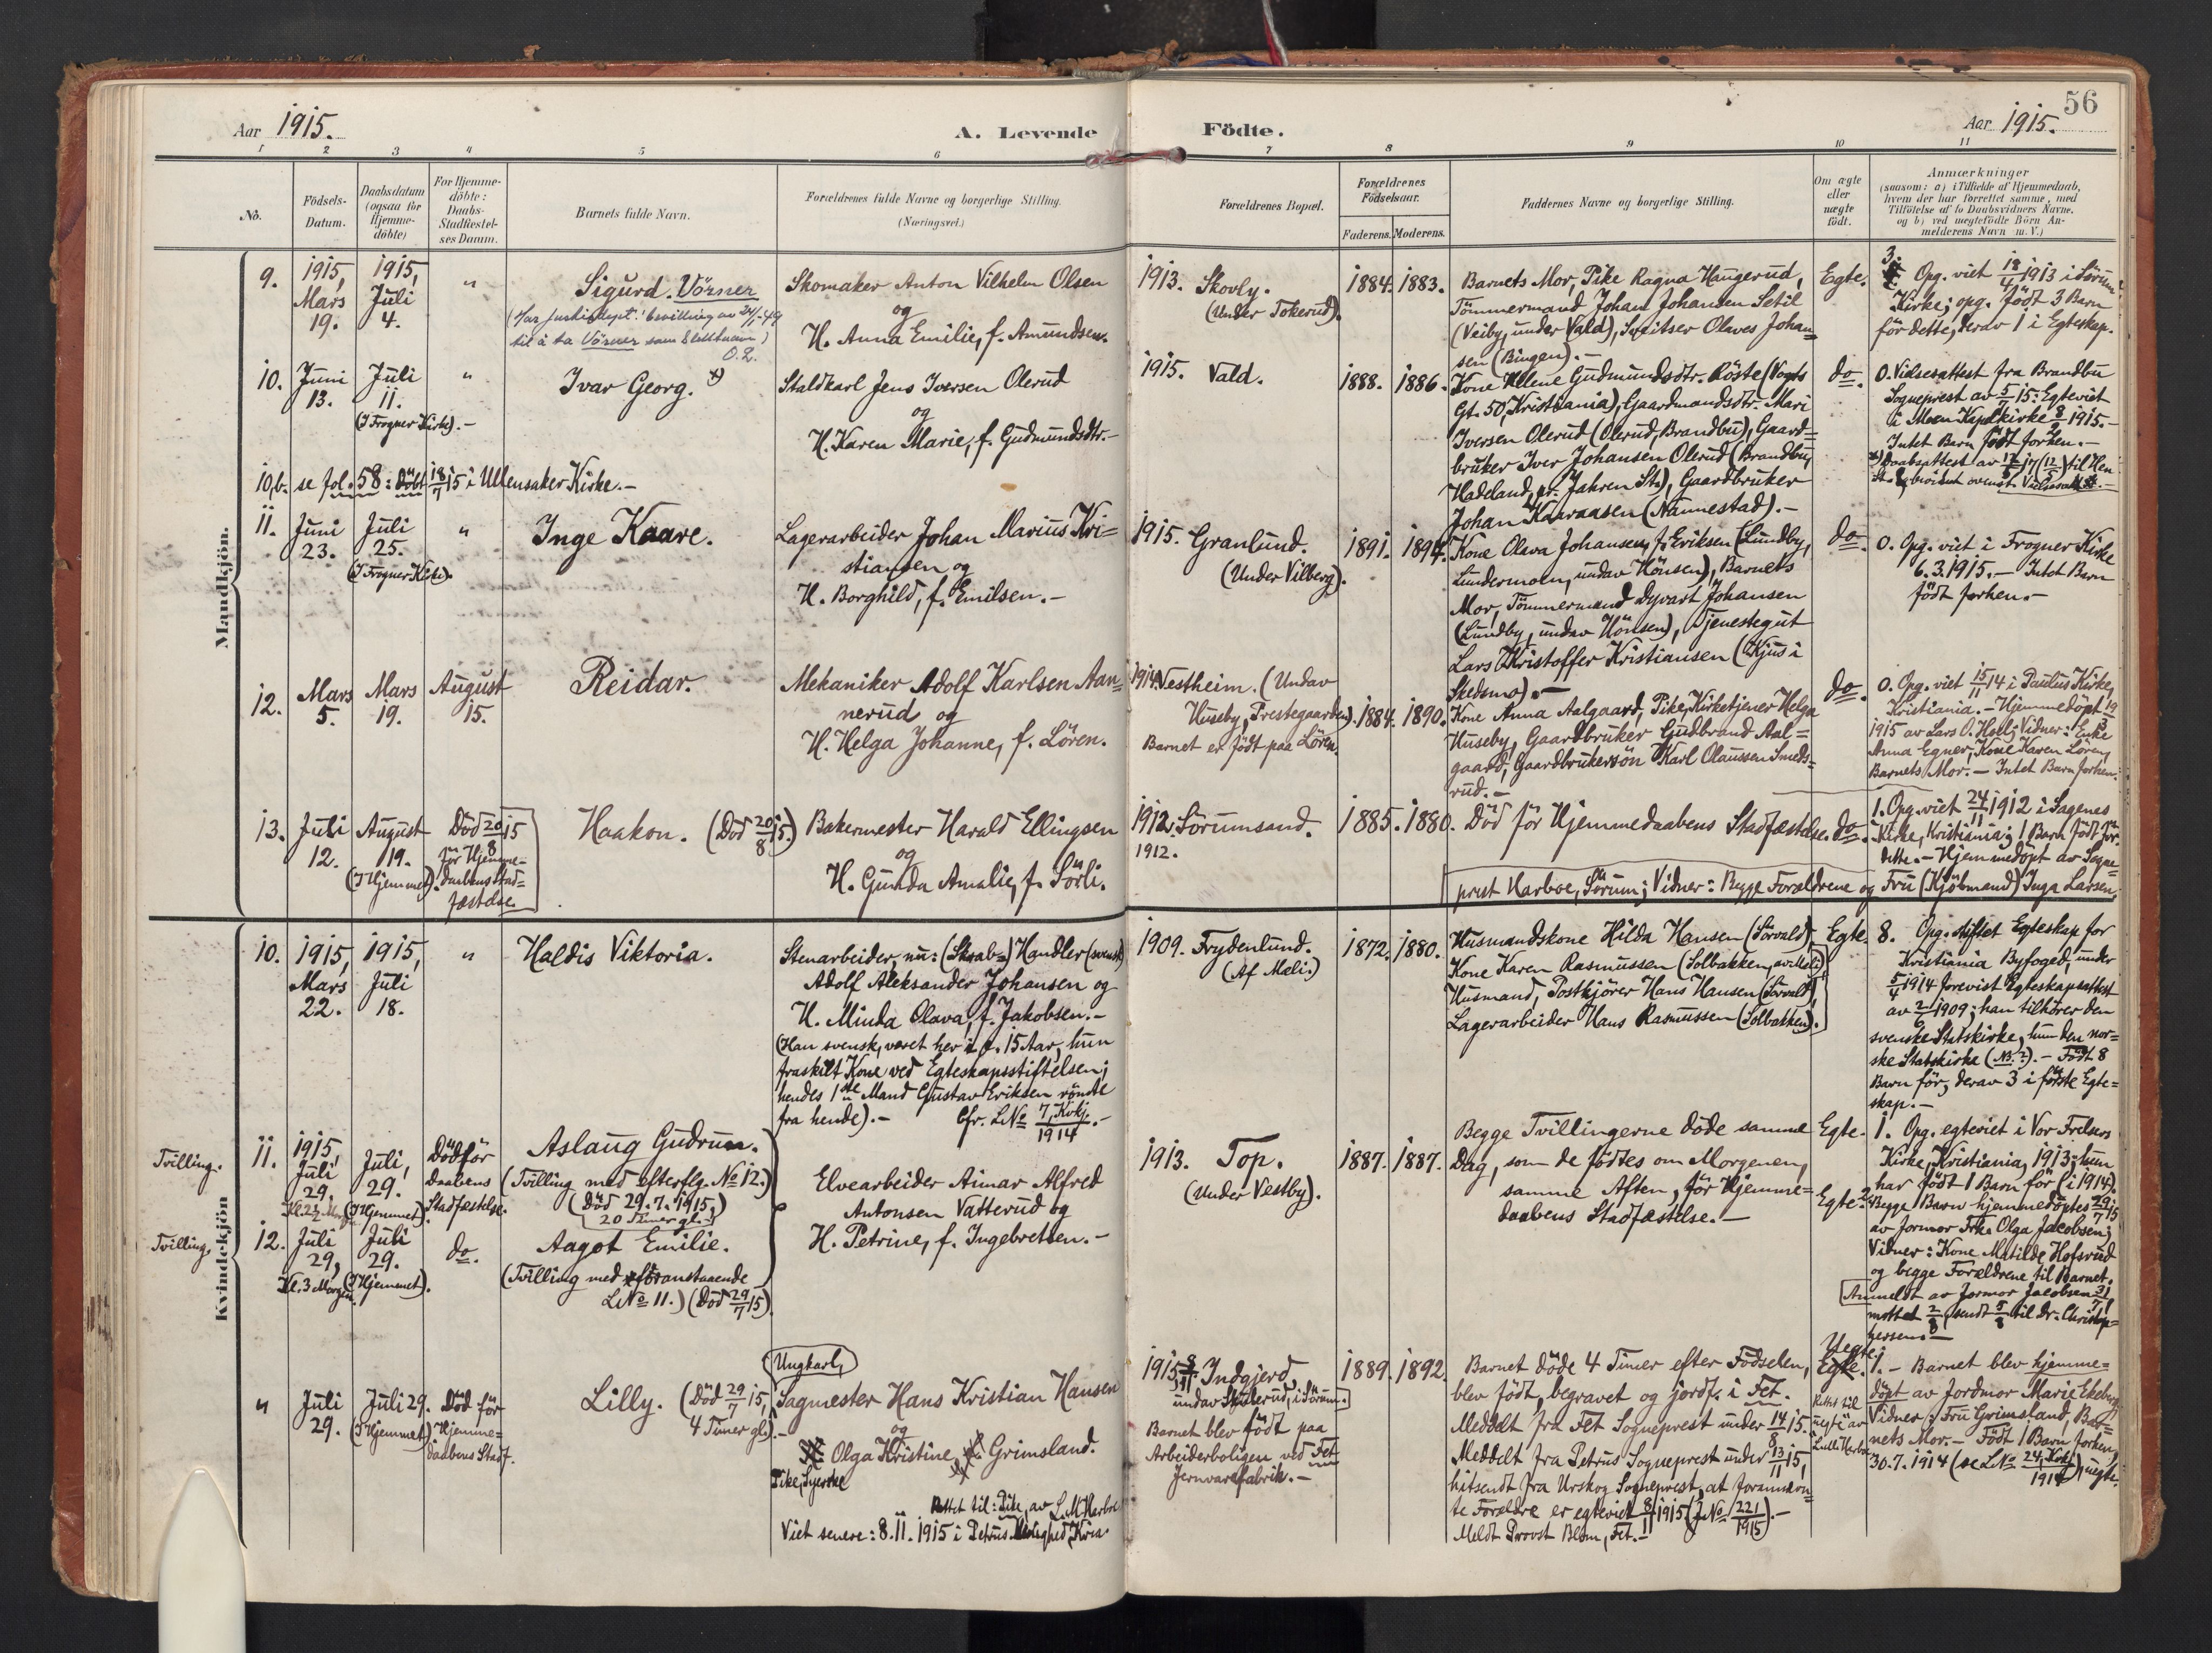 56
Aar 1915.
A. Levende
Födte.
Aar 1915.
1 2 3 4 5 6 7 8 9 10 11
No.
Födsels-
Datum.
Daabsdatum
(ogsaa for
Hjemme-
döbte)
For Hjemme-
döbte:
Daabs-
Stadfæstel-
ses Datum.
Barnets fulde Navn.
Forældrenes fulde Navne og borgerlige Stilling.
(Næringsvei.)
Forældrenes Bopæl.
Forældrenes
Födselsaar.
Faderens. Moderens.
Faddernes Navne og borgerlige Stilling.
Om ægte
eller
uægte
födt.
Anmærkninger
(saasom: a) i Tilfælde af Hjemmedaab,
hvem der har forrettet samme, med
Tilföielse af to Daabsvidners Navne.
og b) ved uægtefödte Börn An-
melderens Navn m. V.)
Mandkjön.
9.
1915,
Mars
19.
1915,
Juli
4.
"
Sigurd. Vörner
(Har justisdept.' bevilling av 24/1-49
til å ta Vörner som slektnavn)
O.L.
Skomaker Anton Vilhelm Olsen
og
H. Anna Emilie, f. Amundsen.
1913. Skovly.
(Under Tokerud).
1884. 1883.
Barnets Mor, Pike Ragna Haugerud,
Tömmermand Johan Johansen Setil
(Veiby, under Vald), Sveitser Olaves Johan=
sen (Bingen).-
Egte.
3. Opg. viet 18/4 1913 i Sörum
Kirke; opg. födt 3 Barn
för dette, derav 1 i Egteskap.
10.
Juni
13.
Juli
11.
(I Frogner Kirke).-
"
Ivar Georg. x)
Staldkarl Jens Iversen Olerud
og
H. Karen Marie, f. Gudmundsdtr.-
1915. Vald.
1888. 1886.
Kone Helene Gudmundsdtr. Röste (Vogts
Gt. 50, Kristiania), Gaardmandsdtr. Mari
Iversen Olerud (Olerud, Brandbu), Gaard=
bruker Iver Johansen Olerud (Brandbu,
Hadeland, pr. Jahren St.), Gaardbruker
Johan Kaaraasen (Nannestad).-
do.
0. Vielsesattest fra Brandbu
Sogneprest av 5/7 15: Egteviet
i Moen Kapelkirke 8/2 1915.-
Intet Barn födt forhen.-
10,b. se fol. 58: Döbt 18/7 15 i Ullensaker Kirke.-
11.
Juni
23.
Juli
25.
(I Frogner Kirke).
"
Inge Kaare.
Lagerarbeider Johan Marius Kri=
stiansen og
H. Borghild, f. Emilsen.-
1915. Granlund.
(Under Vilberg).
1891. 1894.
Kone Olava Johansen, f. Eriksen (Lundby,
Lundermoen, undav Hönsen), Barnets
Mor, Tömmermand Dyvart Johansen
(Lundby, undav Hönsen), Tjenestegut
Lars Kristoffer Kristiansen (Kjus i
Skedsmo).-
do.
0. Opg. viet i Frogner Kirke
6.3.1915.- Intet Barn
födt forhen.-
12.
Mars
5.
Mars
19.
August
15.
Reidar.
Mekaniker Adolf Karlsen Aan=
nerud og
H. Helga Johanne, f. Lören.
1914. Vestheim. (Undav
Huseby, Prestegaarden).
Barnet er födt paa Lören.
1884. 1890.
Kone Anna Aalgaard, Pike, Kirketjener Helga
Huseby, Gaardbruker Gudbrand Aal=
gaard, Gaardbrukersön Karl Olaussen Smeds=
rud.-
do.
0. Opg. viet 15/11 14 i Paulus Kirke,
Kristiania.- Hjemmedöpt 19/3
1915 av Lars O. Holl; Vidner: Enke
Anna Egner, Kone Karen Lören,
Barnets Mor.- Intet Barn forhen.
13.
Juli
12.
August
19.
(I Hjemmet).
Död 20/8 15
för Hjemme-
daabens Stad=
fæstelse.
Haakon. (Död 20/8 15.)
Bakermester Harald Ellingsen
og
H. Gunda Amalie, f. Sörli.
1912. Sörumsand.
1912.
1885. 1880.
Död för Hjemmedaabens Stadfæstelse.
do.
1. Opg. viet 24/11 1912 i Sagenes
Kirke, Kristiania; 1 Barn födt för
dette.- Hjemmedöpt av Sogne=
prest Harboe, Sörum; Vidner: Begge Forældrene og Fru (Kjöbmand) Inga Larsen.
Kvindekjön
10.
1915,
Mars
22.
1915,
Juli
18.
"
Haldis Viktoria.
Stenarbeider, nu: (Skrab=) Handler (svensk)
Adolf Aleksander Johansen og
H. Minda Olava, f. Jakobsen.-
(Han svensk, været her i c. 15 Aar, hun
fraskilt Kone ved Egteskapsstiftelsen;
hendes 1ste Mand Gustav Eriksen römte
fra hende).- Cfr. L.No 7, Kvkj./1914.-
1909. Frydenlund.
(Af Mæli.)
1872. 1880.
Husmandskone Hilda Hansen (Sörvald),
Kone Karen Rasmussen (Solbakken, av Mæli)
Husmand, Postkjörer Hans Hansen (Sörvald),
Lagerarbeider Hans Rasmussen (Solbakken).
Egte.
8. Opg. stiftet Egteskap for
Kristiania Byfoged, under
5/4 1914 forevist Egteskapsattest
av 2/6 1909; han tilhörer den
svenske Statskirke, hun den nor=
ske Statskirke (NB.?).- Födt 8
Barn för, derav 3 i förste Egte=
skap.-
Tvilling.
11.
1915,
Juli
29.
Juli,
29.
(I Hjemmet).
Död för
Daabens
Stadfæstelse.
Aslaug Gudrun.
(Tvilling med efterflg. No 12.)
(Död 29.7.1915,)
20 Timer gl.
Elvearbeider Aimar Alfred
Antonsen Vatterud og
H. Petrine, f. Ingebretsen.-
1913. Top.
(Under Vestby).
1887. 1887.
Begge Tvillingerne döde samme
Dag, som de födtes om Morgenen,
samme Aften, för Hjemme=
daabens Stadfæstelse.-
Egte.
1. Opg. egteviet i Vor Frelsers
Kirke, Kristiania, 1913; hun
har födt 1 Barn för (i 1914).
Tvilling.
12.
Juli
29,
Kl. 3 Morgen.
Juli
29.
(I Hjemmet).
do.
Aagot Emilie.
(Tvilling med foranstaaende
L.No 11.) (Död 29/7 15)
Egte.
2. Begge Barn hjemmedöptes 29/7 15
av Jormor Frk. Olga Jacobsen;
Vidner: Kone Matilde Hofsrud
og begge Forældrene til Barnet.
Anmeldt av Jormor Jacobsen 31/7,
mottat 2/8, sendt 5/8 til Dr. Christop=
hersen.-
"
Juli
29.
Juli 29.
(I Hjemmet)
Död för
Hjemme=
daabens Stadf.
Lilly. (Död 29/7 15,
4 Timer gl.)-
Ungkarl,
Sagmester Hans Kristian Hansen
og
Olga Kristine Grimsland.
Pike, Syerske
Rettet til: Pike, av L.M. Harboe
Viet senere: 8.11.1915 i Petrus Menighed, Kria.
1915 8/11. Indgjerd,
undav Skulerud, i Sörum.
Barnet blev födt paa
Arbeiderboligen ved Fet
Jernvarefabrik.-
1889. 1892
Barnet döde 4 Timer efter Födselen,
blev födt, begravet og jordf. i Fet.
Meddelt fra Fet Sogneprest under 14/8 15.
Meddelt fra Petrus' Sogneprest under 13/11 15,
hitsendt fra Urskog Sogneprest, at foranmeldn=
te Forældre er egteviet 8/11 1915 (J.No 221/1915).-
Meldt Provst Blom, Fet.-
Uegte;
Egte.
Rettet til
uegte av
1.- Barnet blev hjemme=
döpt av Jordmor Marie Ekeberg;
Vidner: Fru Grimsland, Bar=
nets Mor.- Födt 1 Barn forhen,
30.7.1914 (se L.No 24, Kvkj./1914), uegte.